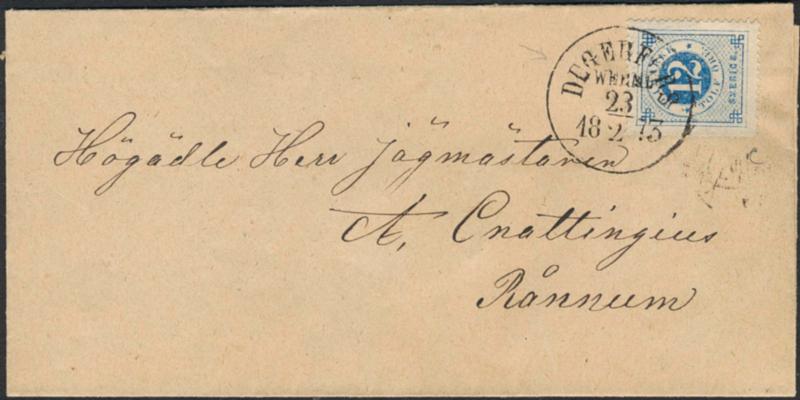 DEGERFORS
WERML.
23
18 2 73
TOLF ÖRE
SVERIGE
12
Högädle Herr Jägmästaren
A, Cnattingius
Rånnum